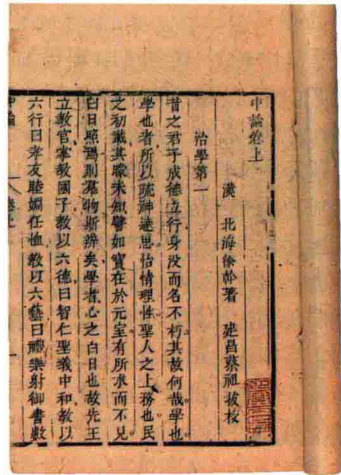 中論卷上
漢 北海徐幹著 建昌蔡祖拔校
治學第一
昔之君子成德立行身没而名不朽其故何哉學也
學也者所以疏神達思怡情理性聖人之上務也民
之初載其矇未知譬如寶在於玄室有所求而不見
白日照焉則羣物斯辨矣學者心之白日也故先王
立教官掌教國子教以六德曰智仁聖義中和教以
六行曰孝友睦婣任恤教以六藝曰禮樂射御書數
中論